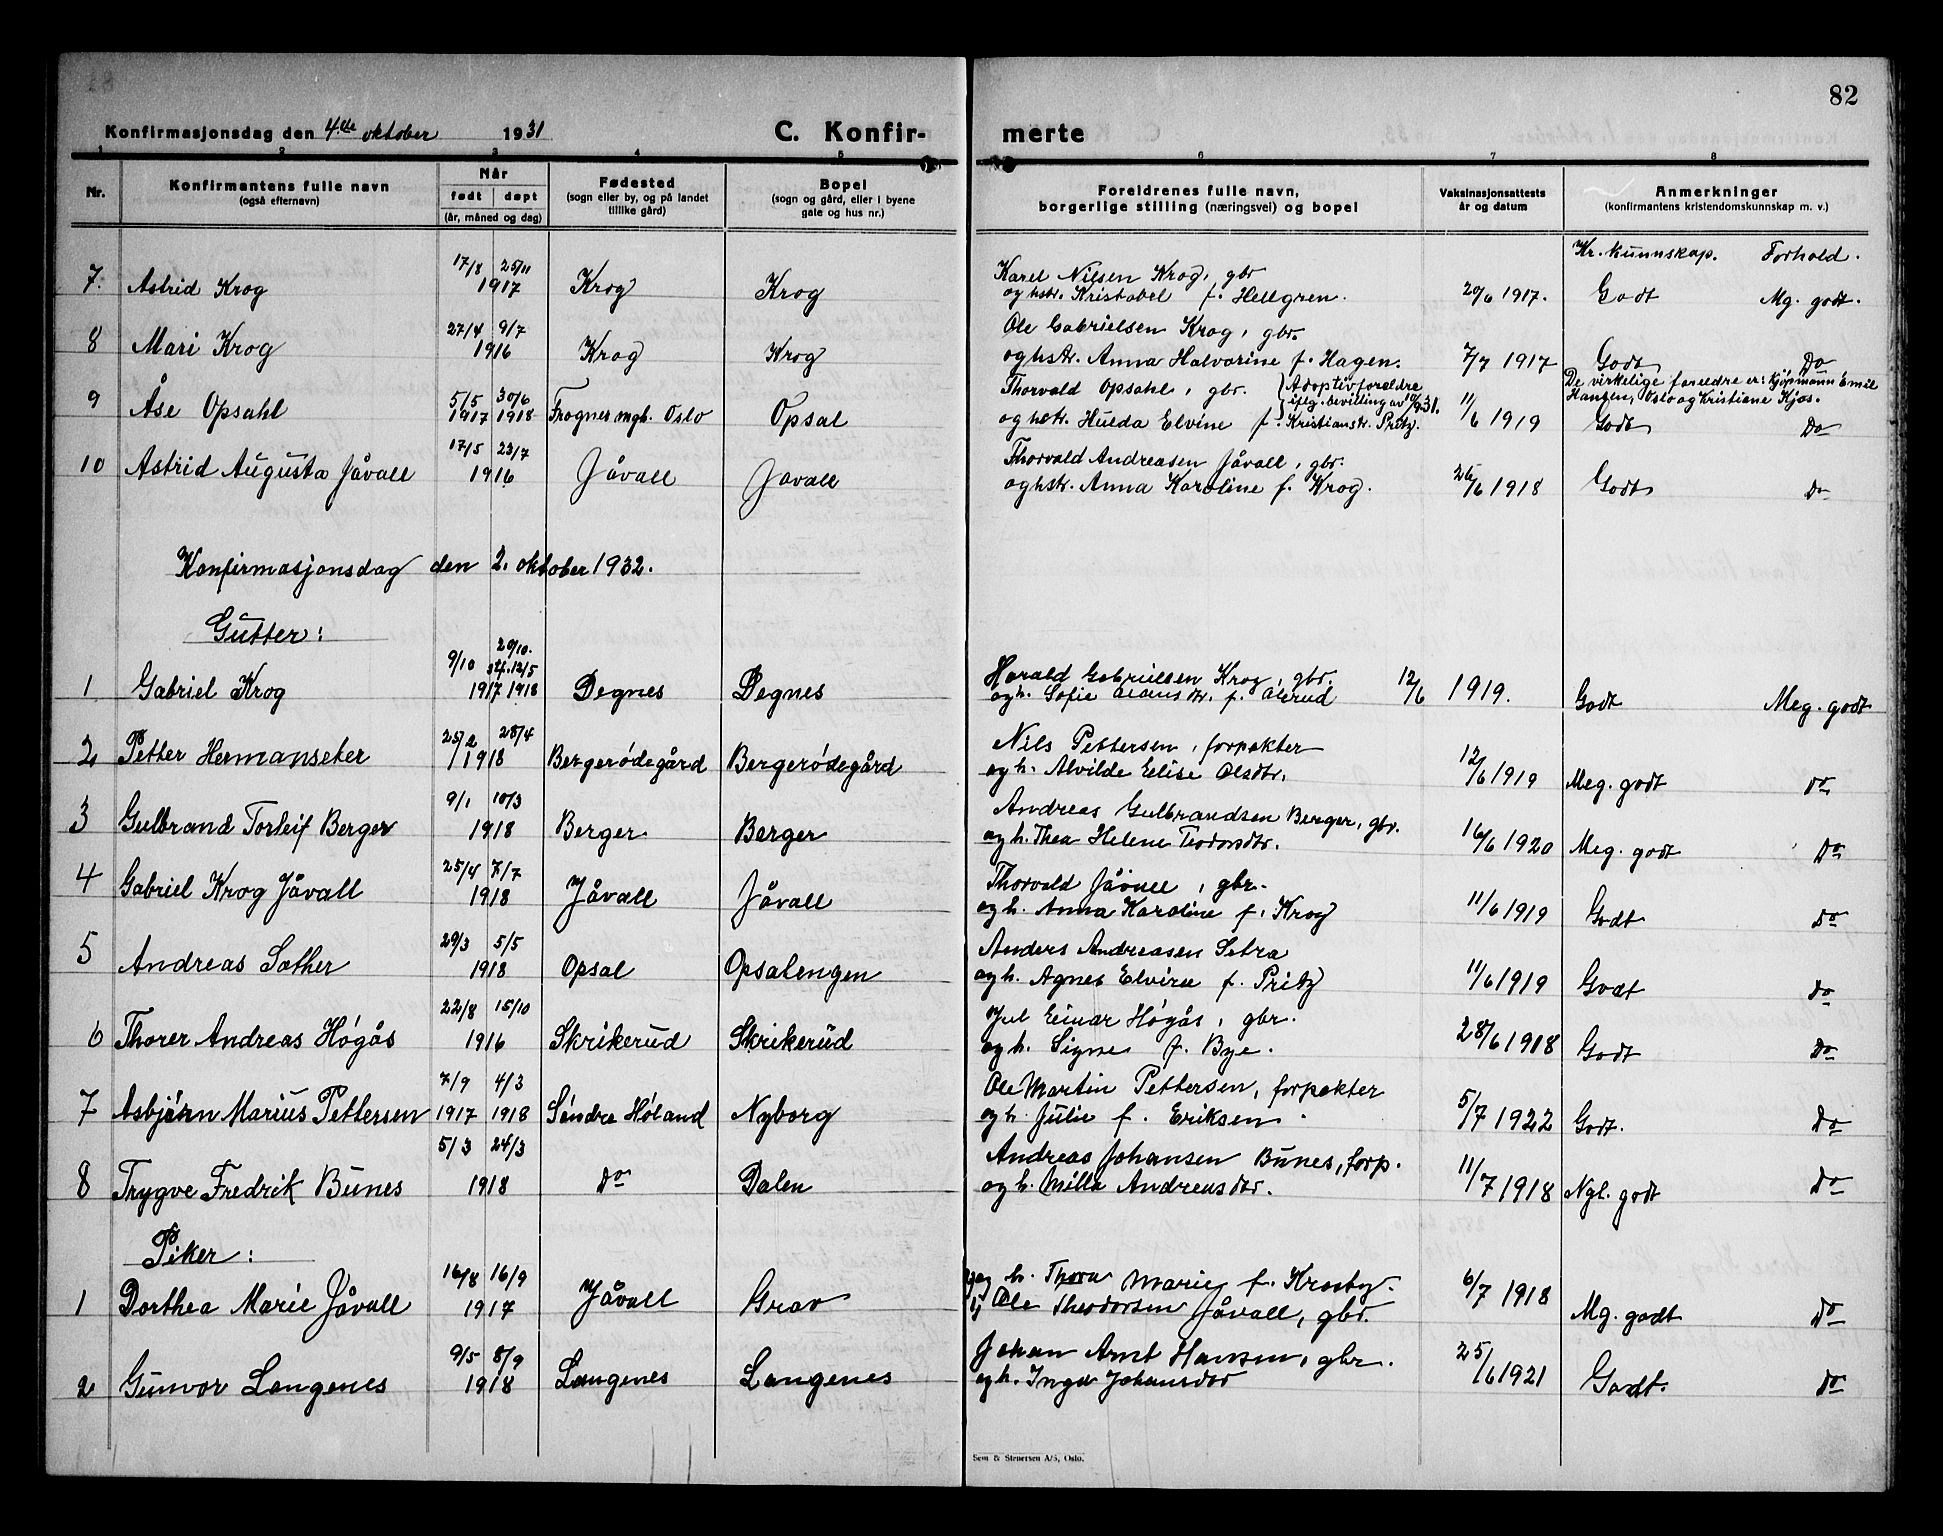 82
Konfirmasjonsdag den 4de oktober 1931 C. Konfir- merte
1 2 3 4 5 6 7 8
Nr. Konfirmantens fulle navn (også efternavn) Når født døpt (år, måned og dag) Fødested (sogn eller by, og på landet tillike gård) Bopel (sogn og gård, eller i byene gate og hus nr.) Foreldrenes fulle navn, borgerlige stilling (næringsvei) og bopel Vaksinasjonsattests år og datum Anmerkninger (konfirmantens kristendomskunnskap m. v.)
Kr. kunnskap. Forhold.
7. Astrid Krog 17/8 25/11 1917 Krog Krog Karel Nilsen Krog, gbr og hstr. Kristabel f. Hellgren. 20/6 1917. Godt Mg. godt.
8 Mari Krog 27/4 9/7 1916 Krog Krog Ole Gabrielsen Krog, gbr. og hstr. Anna Halvorine f. Hagen. 7/7 1917 Godt Do
9 Åse Opsahl 5/5 1917 30/6 1918 Frogner mgh. Oslo Opsal Thorvald Opsahl, gbr. og hstr. Hulda Elvine f. Kristianstr. Pritz. Adoptivforeldre iflg. bevilling av 10/9 31. 11/6 1919 De virkelige foreldre er: Kjøpmann Emil Hansen, Oslo og Kristiane Kjos. Godt Do
10 Astrid Augusta Jåvall 17/5 23/7 1916 Jåvall Jåvall Thorvald Andreasen Jåvall, gbr. og hstr. Anna Karoline f. Krog. 26/6 1918 Godt Do
Konfirmasjonsdag den 2. oktober 1932.
Gutter:
1 Gabriel Krog 9/10 1917 29/10. 12/5 1918 Degnes Degnes Harald Gabrielsen Krog, gbr. og h. Sofie f. 12/6 1919. Godt Meg. godt
2 Petter Hermanseter 25/2 28/4 1918 Bergerødegård Bergerødegård Nils Pettersen, forpakter og h. Alvilde Elise Olsdtr. 12/6 1919 Meg. godt Do
3 Gulbrand Torleif Berger 9/1 10/3 1918 Berger Berger Andreas Gulbrandsen Berger, gbr. og h. Thea Helene Teodorsdtr. 16/6 1920 Meg. godt Do
4 Gabriel Krog Jåvall 25/4 7/7 1918 Jåvall Jåvall Thorvald Jåvall, gbr. og h. Anna Karoline f. Krog 11/6 1919 Godt Do
5 Andreas Sæther 29/3 5/5 1918 Opsal Opsalengen Anders Andreasen Setra og h. Agnes Elvira f. Pritz 11/6 1919 Godt Do
6 Thorer Andreas Høgås 22/8 15/10 1916 Skrikerud Skrikerud Jul Einar Høgås, gbr. og h. Signe f. Bye. 28/6 1918 Godt Do
7 Asbjørn Marius Pettersen 7/9 1917 4/3 1918 Søndre Høland Nyborg Ole Martin Pettersen, forpakter og h. Julie f. Eriksen 5/7 1922 Godt. Do
8 Trygve Fredrik Bunes 5/3 24/3 1918 Do Dalen Andreas Johansen Bunes, forp. og h. Milla Andreasdtr. 11/7 1918 Ngl. godt Do
Piker:
1 Dorthea Marie Jåvall 16/8 16/9 1917 Jåvall Grav og h. Thora Marie f. Krosby. Ole Theodorsen Jåvall, gbr. 6/7 1918 Mg. godt Do
2 Gunvor Langenes 9/5 8/9 1918 Langenes Langenes Johan Arnt Hansen, gbr. og h. Inga Johansdtr 25/6 1921 Godt. Do
Sem & Stenersen A/S, Oslo.